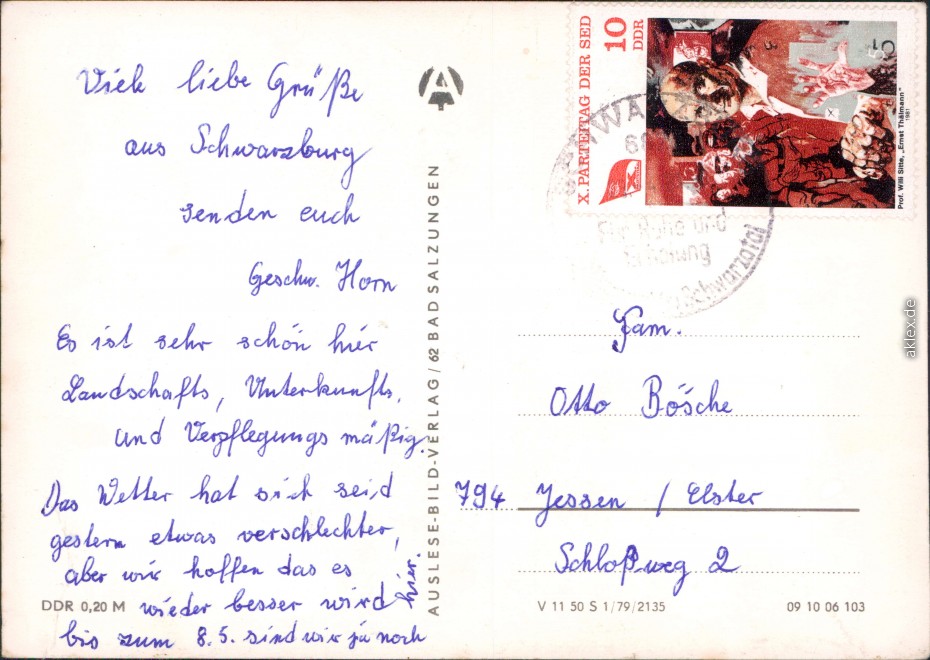 Viele liebe Grüße
aus Schwarzburg
senden euch
Geschw. Horn
Es ist sehr schön hier
Landschafts, Unterkunfts,
und Verpflegungs mäßig.
Das Wetter hat sich seid
gestern etwas verschlechter,
aber wir hoffen das es
wieder besser wird
bis zum 8.5. sind wir ja noch
hier.
DDR 0,20 M
AUSLESE-BILD-VERLAG / 62 BAD SALZUNGEN
X. PARTEITAG DER SED
10
DDR
Prof. Willi Sitte, „Ernst Thälmann"
1981
Für Ruhe und
Erholung
Schwarzatal
Fam.
Otto Bösche
794 Jessen / Elster
Schloßweg 2
V 11 50 S 1/79/2135
09 10 06 103
aklex.de